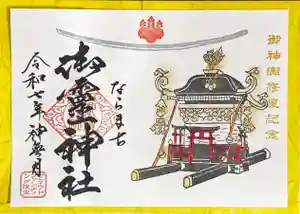 御神輿修復記念
ならまち
御霊神社
令和七年神無月